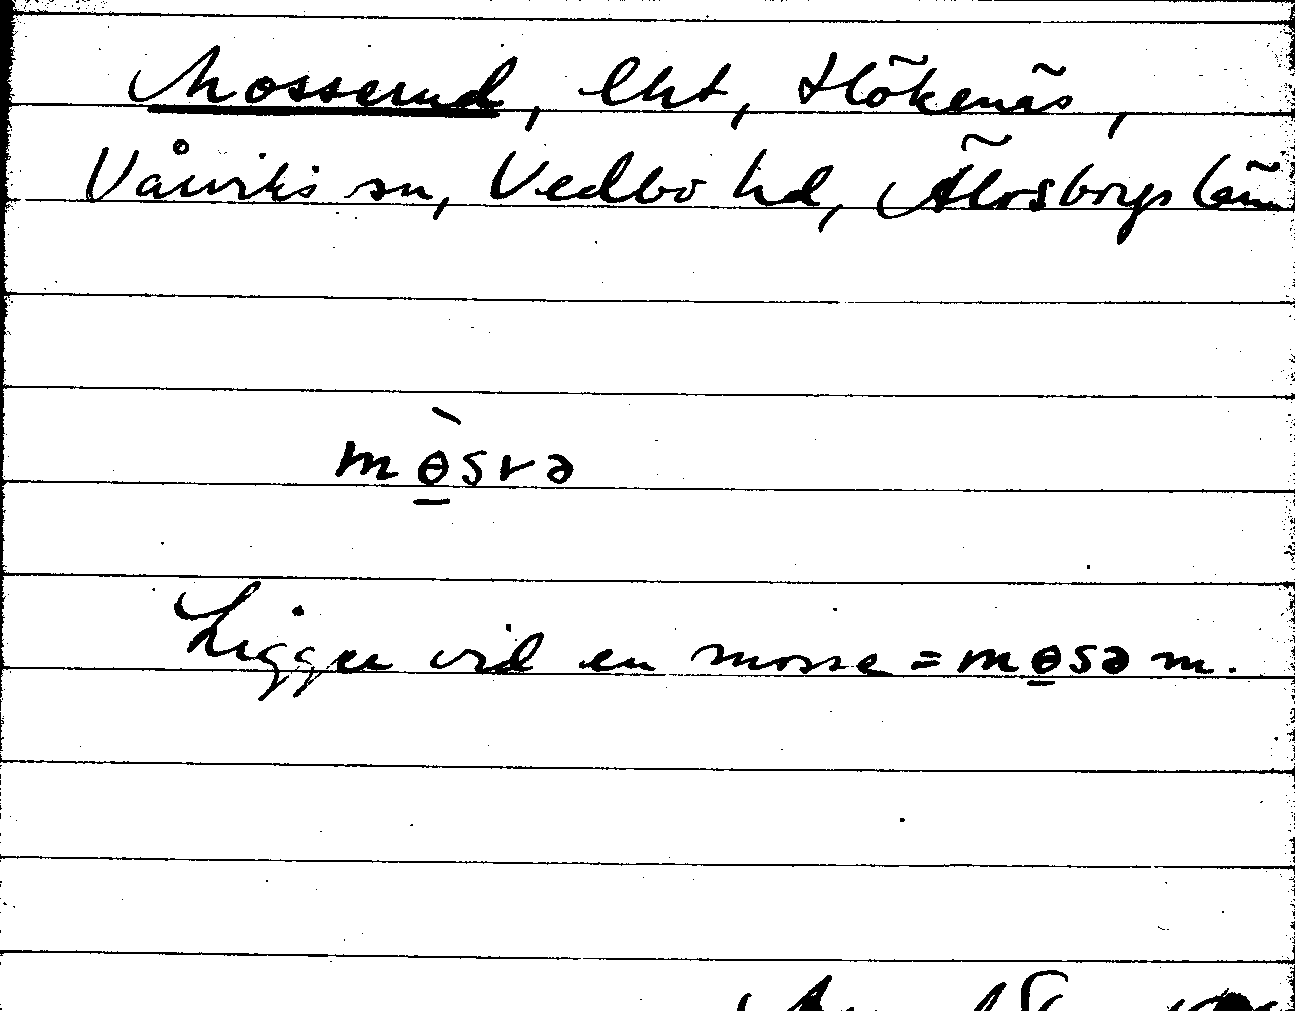 Mosserud, lht, Hökenäs,
Vårviks sn, Vedbo hd, Älvsborgs län
mө̲̀srə
Ligger vid en mosse = mө̲sə m.